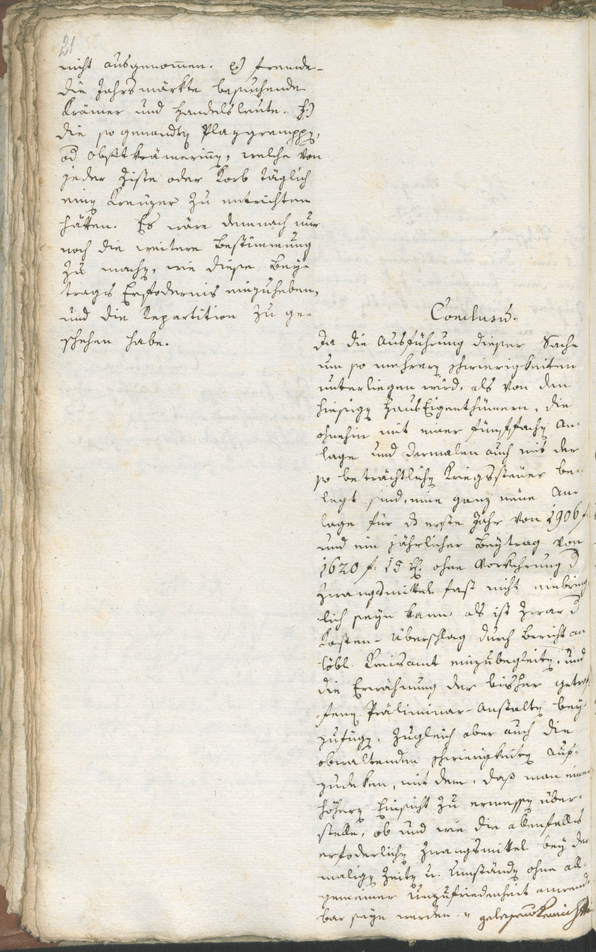 21
nicht ausgenommen. g) fremde
die Jahrsmärkte besuchende
Krämer und Handelsleute. h)
die sogenandte
od Obstkrämerinn, welche von
jeder Ziste oder Korb täglich
einen Kreuzer zu entrichten
hätten. Es wäre demnach nur
noch die weitere Bestimmung
zu machen, wie diese Bey-
trags Erfodernis einzuheben,
und die Repartition zu ge-
schehen habe.
Conclusũ.
Da die Ausführung dieser Sache
um so mehrern Schwierigkeiten
unterliegen wird, als von den
hiesigen HausEigenthümern, die
ohnehin mit einer fünffachen An-
lage und dermalen auch mit der
so beträchtlichen Kriegssteuer be-
legt sind, eine ganz neue An-
lage für d erste Jahr von 1906 f
und ein jährlicher Beytrag von
1620 f. 15 X. ohne Vorkehrung d
Zwangsmittel fast nicht einbring
lich seyn kann, als ist zwar d
Kosten-Überschlag durch Bericht an
löbl. Kreisamt einzubegleiten, und
die Erwähnung der bisher getrof
fenen Präliminar-Anstalten bey-
zufügen, zugleich aber auch die
obwaltenden Schwierigkeiten auf-
zudeken, mit dem, daß man einer
höhern Einsicht zu ermessen über-
stelle, ob und wie die allenfalls
erfoderlichen Zwangsmittel bey der
maligen Zeiten u. Umständen ohne all-
gemeiner Unzufriedenheit anwend
bar seyn werden.